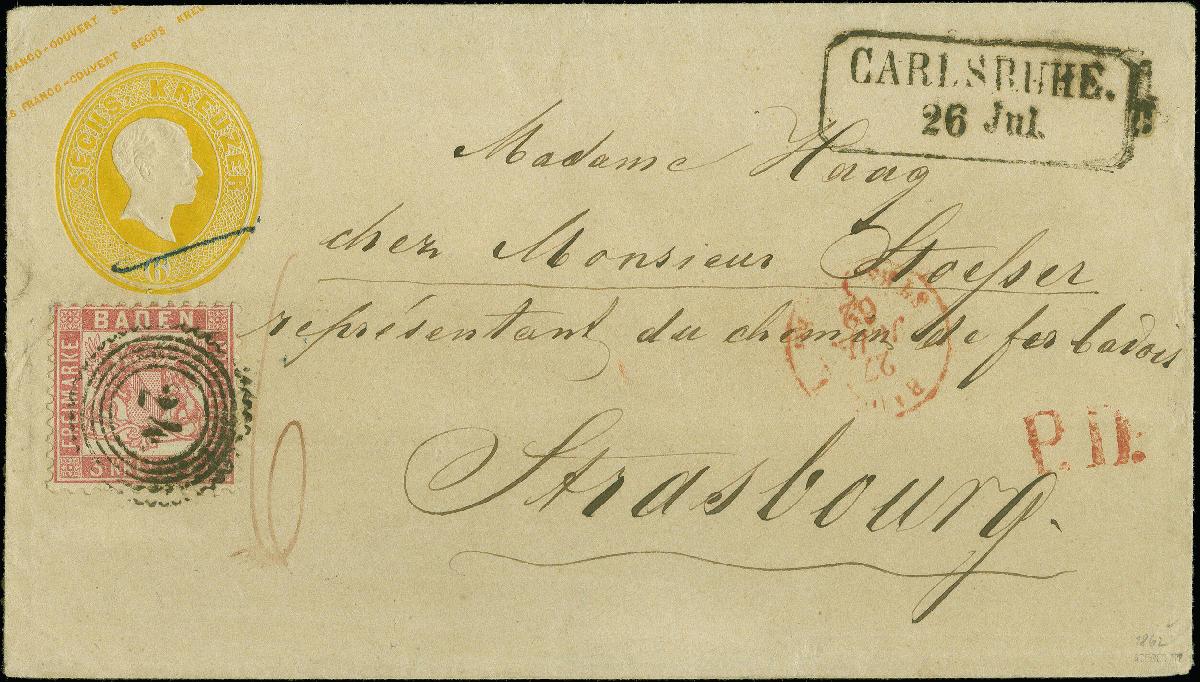 FRANCO-COUVERT SE
S FRANCO-COUVERT SECHS KREU
SECHS KREUZER
6
CARLSRUHE.
26 Jul.
Madame Haag
chez Monsieur Stoesser
représentant du chemin de fer badois
Strasbourg.
BADEN
FREIMARKE
3 K
24
27
62
P.D.
6
1862